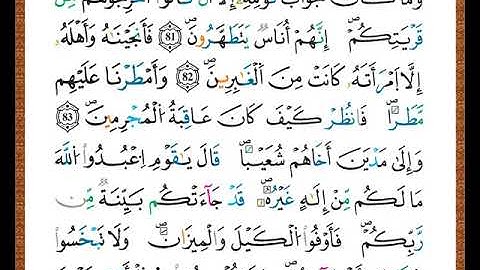 وَمَا كَانَ جَوَابَ قَوْمِهِۦٓ إِلَّآ أَن قَالُوٓا۟ أَخْرِجُوهُم مِّن
قَرْيَتِكُمْ إِنَّهُمْ أُنَاسٌ يَتَطَهَّرُونَ 81 فَأَنجَيْنَٰهُ وَأَهْلَهُۥٓ
إِلَّا ٱمْرَأَتَهُۥ كَانَتْ مِنَ ٱلْغَٰبِرِينَ 82 وَأَمْطَرْنَا عَلَيْهِم
مَّطَرًا فَٱنظُرْ كَيْفَ كَانَ عَٰقِبَةُ ٱلْمُجْرِمِينَ 83
وَإِلَىٰ مَدْيَنَ أَخَاهُمْ شُعَيْبًا قَالَ يَٰقَوْمِ ٱعْبُدُوا۟ ٱللَّهَ
مَا لَكُم مِّنْ إِلَٰهٍ غَيْرُهُۥ قَدْ جَآءَتْكُم بَيِّنَةٌ مِّن
رَّبِّكُمْ فَأَوْفُوا۟ ٱلْكَيْلَ وَٱلْمِيزَانَ وَلَا تَبْخَسُوا۟